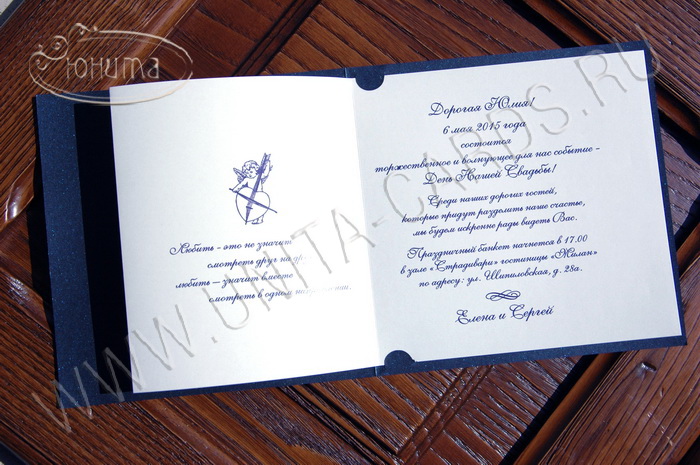 Юнита
Любить - это не значит
смотреть друг на
любить — значит вместе
смотреть в одном
Дорогая Юлия!
6 мая 2015 года
состоится
торжественное и волнующее для нас событие -
День Нашей Свадьбы!
Среди наших дорогих гостей,
которые придут разделить наше счастье,
мы будем искренне рады видеть Вас.
Праздничный банкет начнется в 17.00
в зале «Страдивари» гостиницы «Милан»
по адресу: ул. Шипиловская, д. 28а.
Елена и Сергей
WWW.UNITA-CARDS.RU